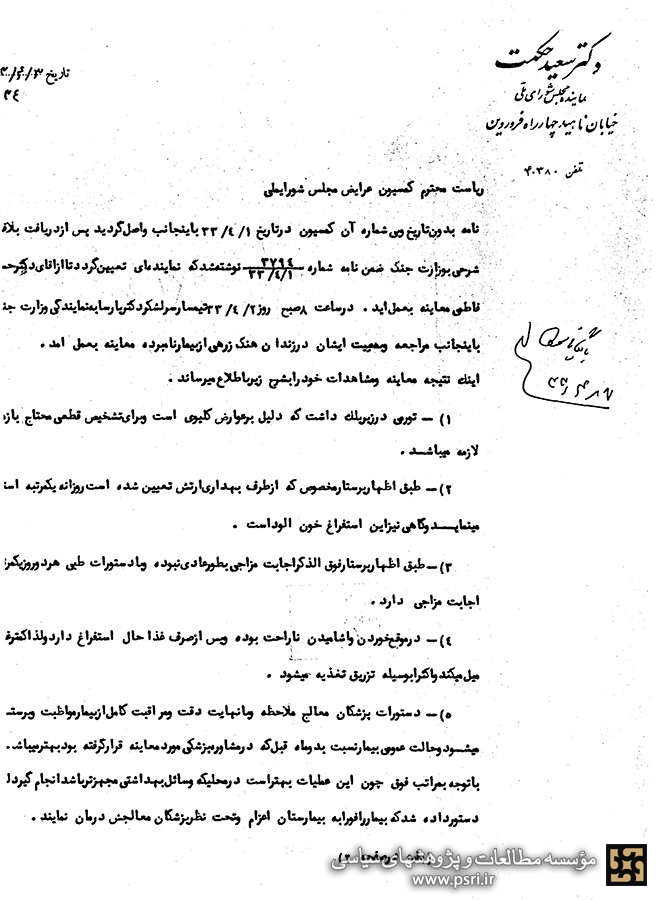 دکتر سعید حکمت
نماینده مجلس شورای ملی
خیابان ناهید چهارراه فروردین
تلفن ۴۰۳۸۰
تاریخ
۴٤
ریاست محترم کمسیون عرایض مجلس شورایملی
نامه بدون تاریخ وبی شماره آن کمسیون درتاریخ ۳۳/٤/۱ باینجانب واصل گردید پس ازدریافت بلاف
شرحی بوزارت جنک ضمن نامه شماره ۳۷۹٤ ۳۳/٤/۱ نوشته شد که نماینده‌ای تعیین گردد تا ازاقای دکترحس
فاطمی معاینه بعمل اید . درساعت ۸ صبح روز ۳۳/٤/۲ تیمسارسرلشکر دکتر بنمایندگی وزارت جن
باینجانب مراجعه وبمعیت ایشان درزندان هنک زرهی ازبیمارنامبرده معاینه بعمل امد .
اینك نتیجه معاینه ومشاهدات خودرابشرح زیرباطلاع میرساند .
۱) – تورمی درزیرپلك داشت که دلیل برعوارض کلیوی است وبرای تشخیص قطعی محتاج باز
لازمه میباشد .
۲) – طبق اظهارپرستارمخصوص که ازطرف بهداری ارتش تعیین شده است روزانه یکمرتبه است
مینمایـد وگاهی نیزاین استفراغ خون الوداست .
۳) – طبق اظهارپرستارفوق الذکراجابت مزاجی بطورعادی نبوده وبادستورات طبی هردوروزیکمر
اجابت مزاجی دارد .
٤) – درموقع خوردن واشامیدن ناراحت بوده وپس ازصرف غذا حال استفراغ دارد ولذا کمترغ
میل میکند واکثرابوسیله تزریق تغذیه میشود .
٥) – دستورات پزشکان معالج ملاحظه وبانهایت دقت ومراقبت کامل ازبیمارمواظبت وپرستـ
میشود وحالت عمومی بیمارنسبت بدوماه قبل که درمشاوره پزشکی موردمعاینه قرارگرفته بود بهترمیباشد.
باتوجه بمراتب فوق چون این عملیات بهتراست درمحلیکه وسائل بهداشتی مجهزترباشد انجام گیرد ل
دستورداده شد که بیماررافورا به بیمارستان اعزام وتحت نظرپزشکان معالجش درمان نمایند .
مؤسسه مطالعات و پژوهشهای سیاسی
www.psri.ir